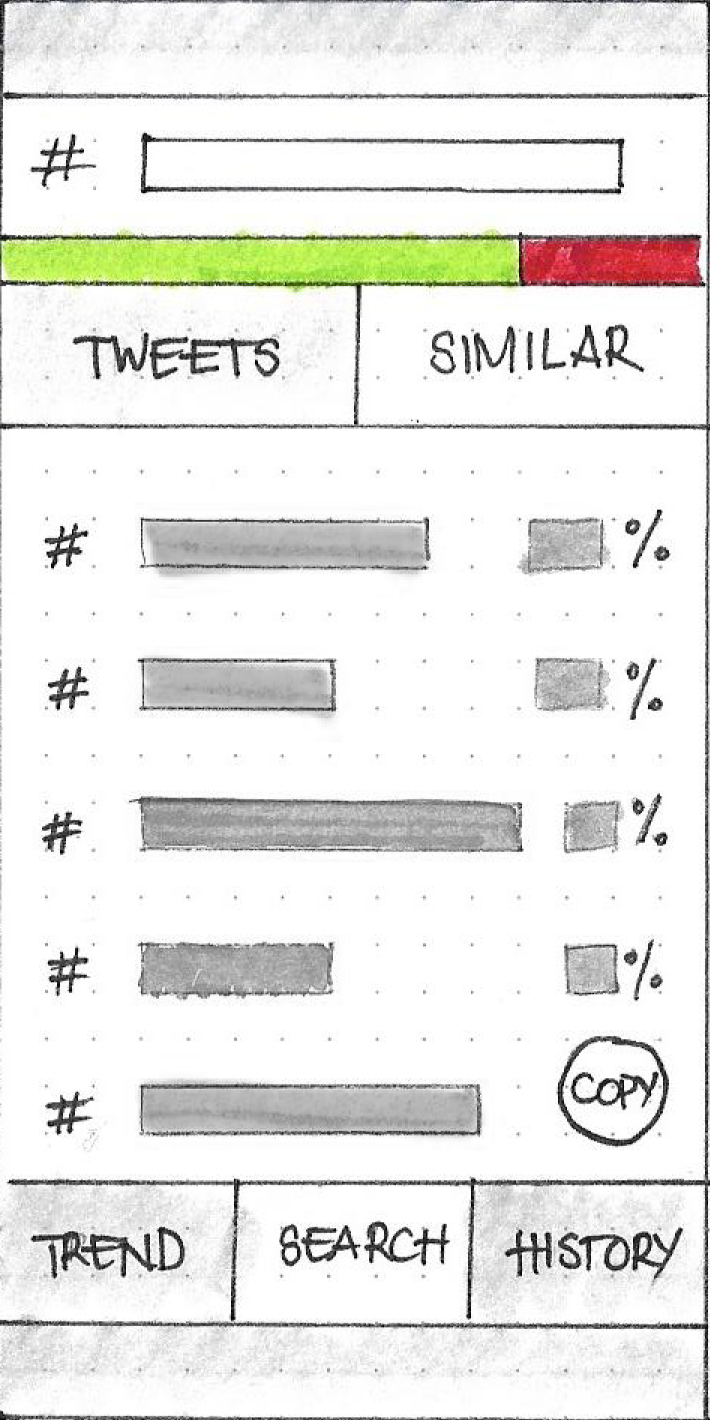 #
TWEETS SIMILAR
# %
# %
# %
# %
# COPY
TREND SEARCH HISTORY